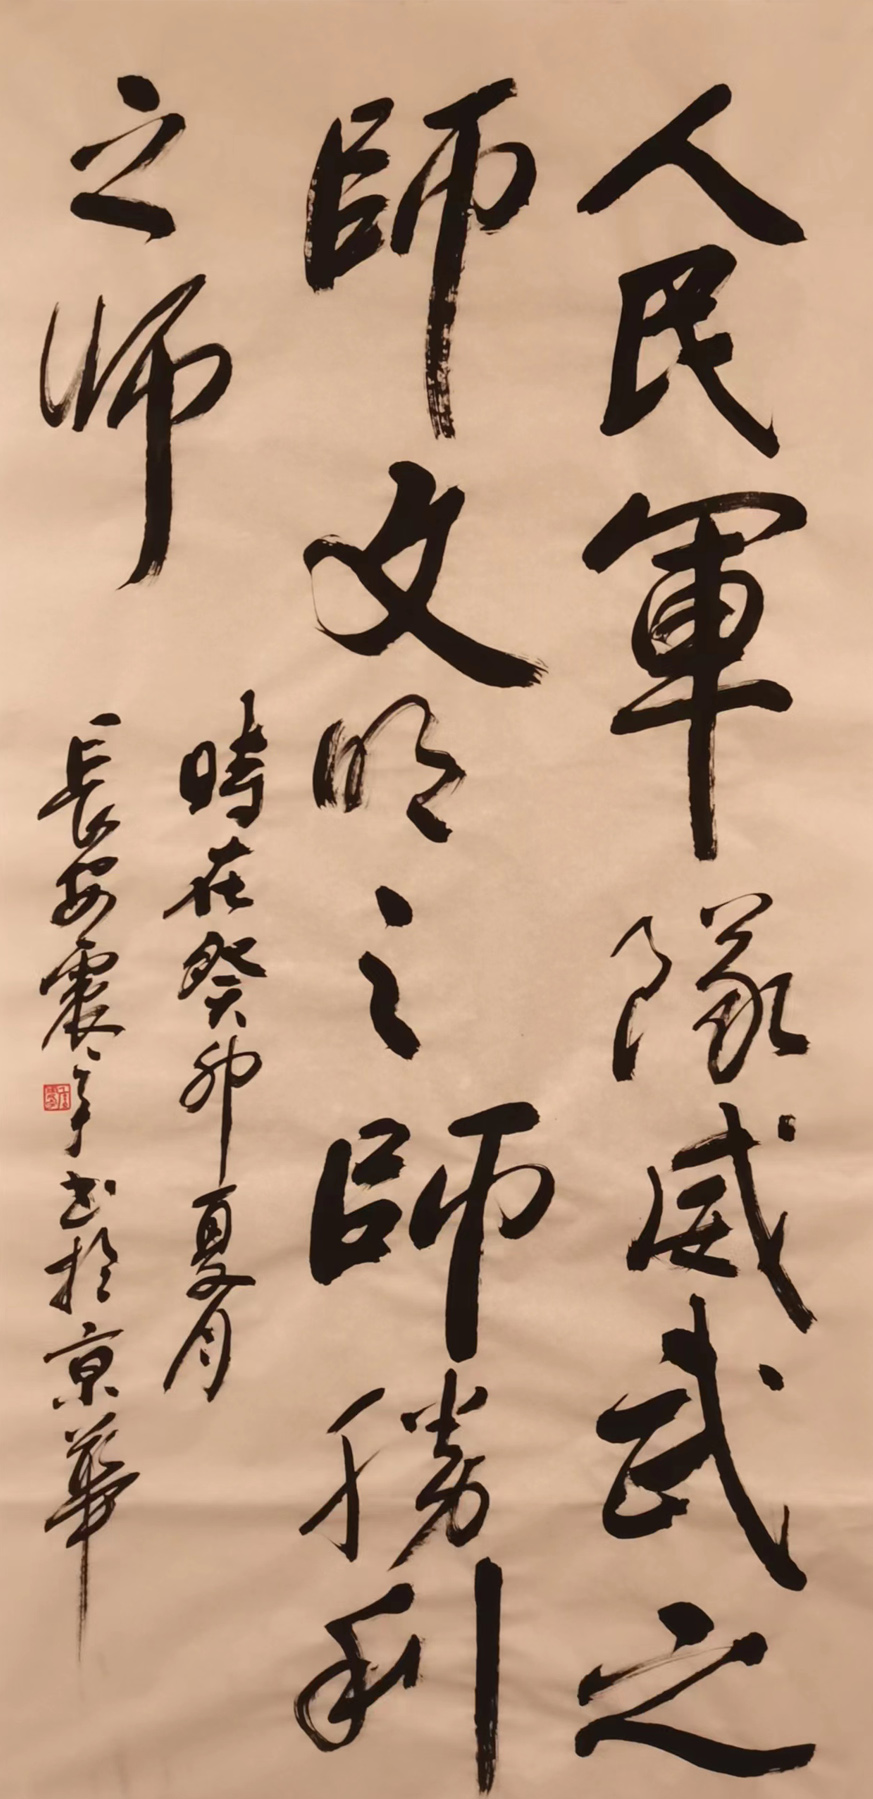 人民軍隊威武之
師文明之師勝利
之师
時在癸卯夏月
長安震宇书於京華